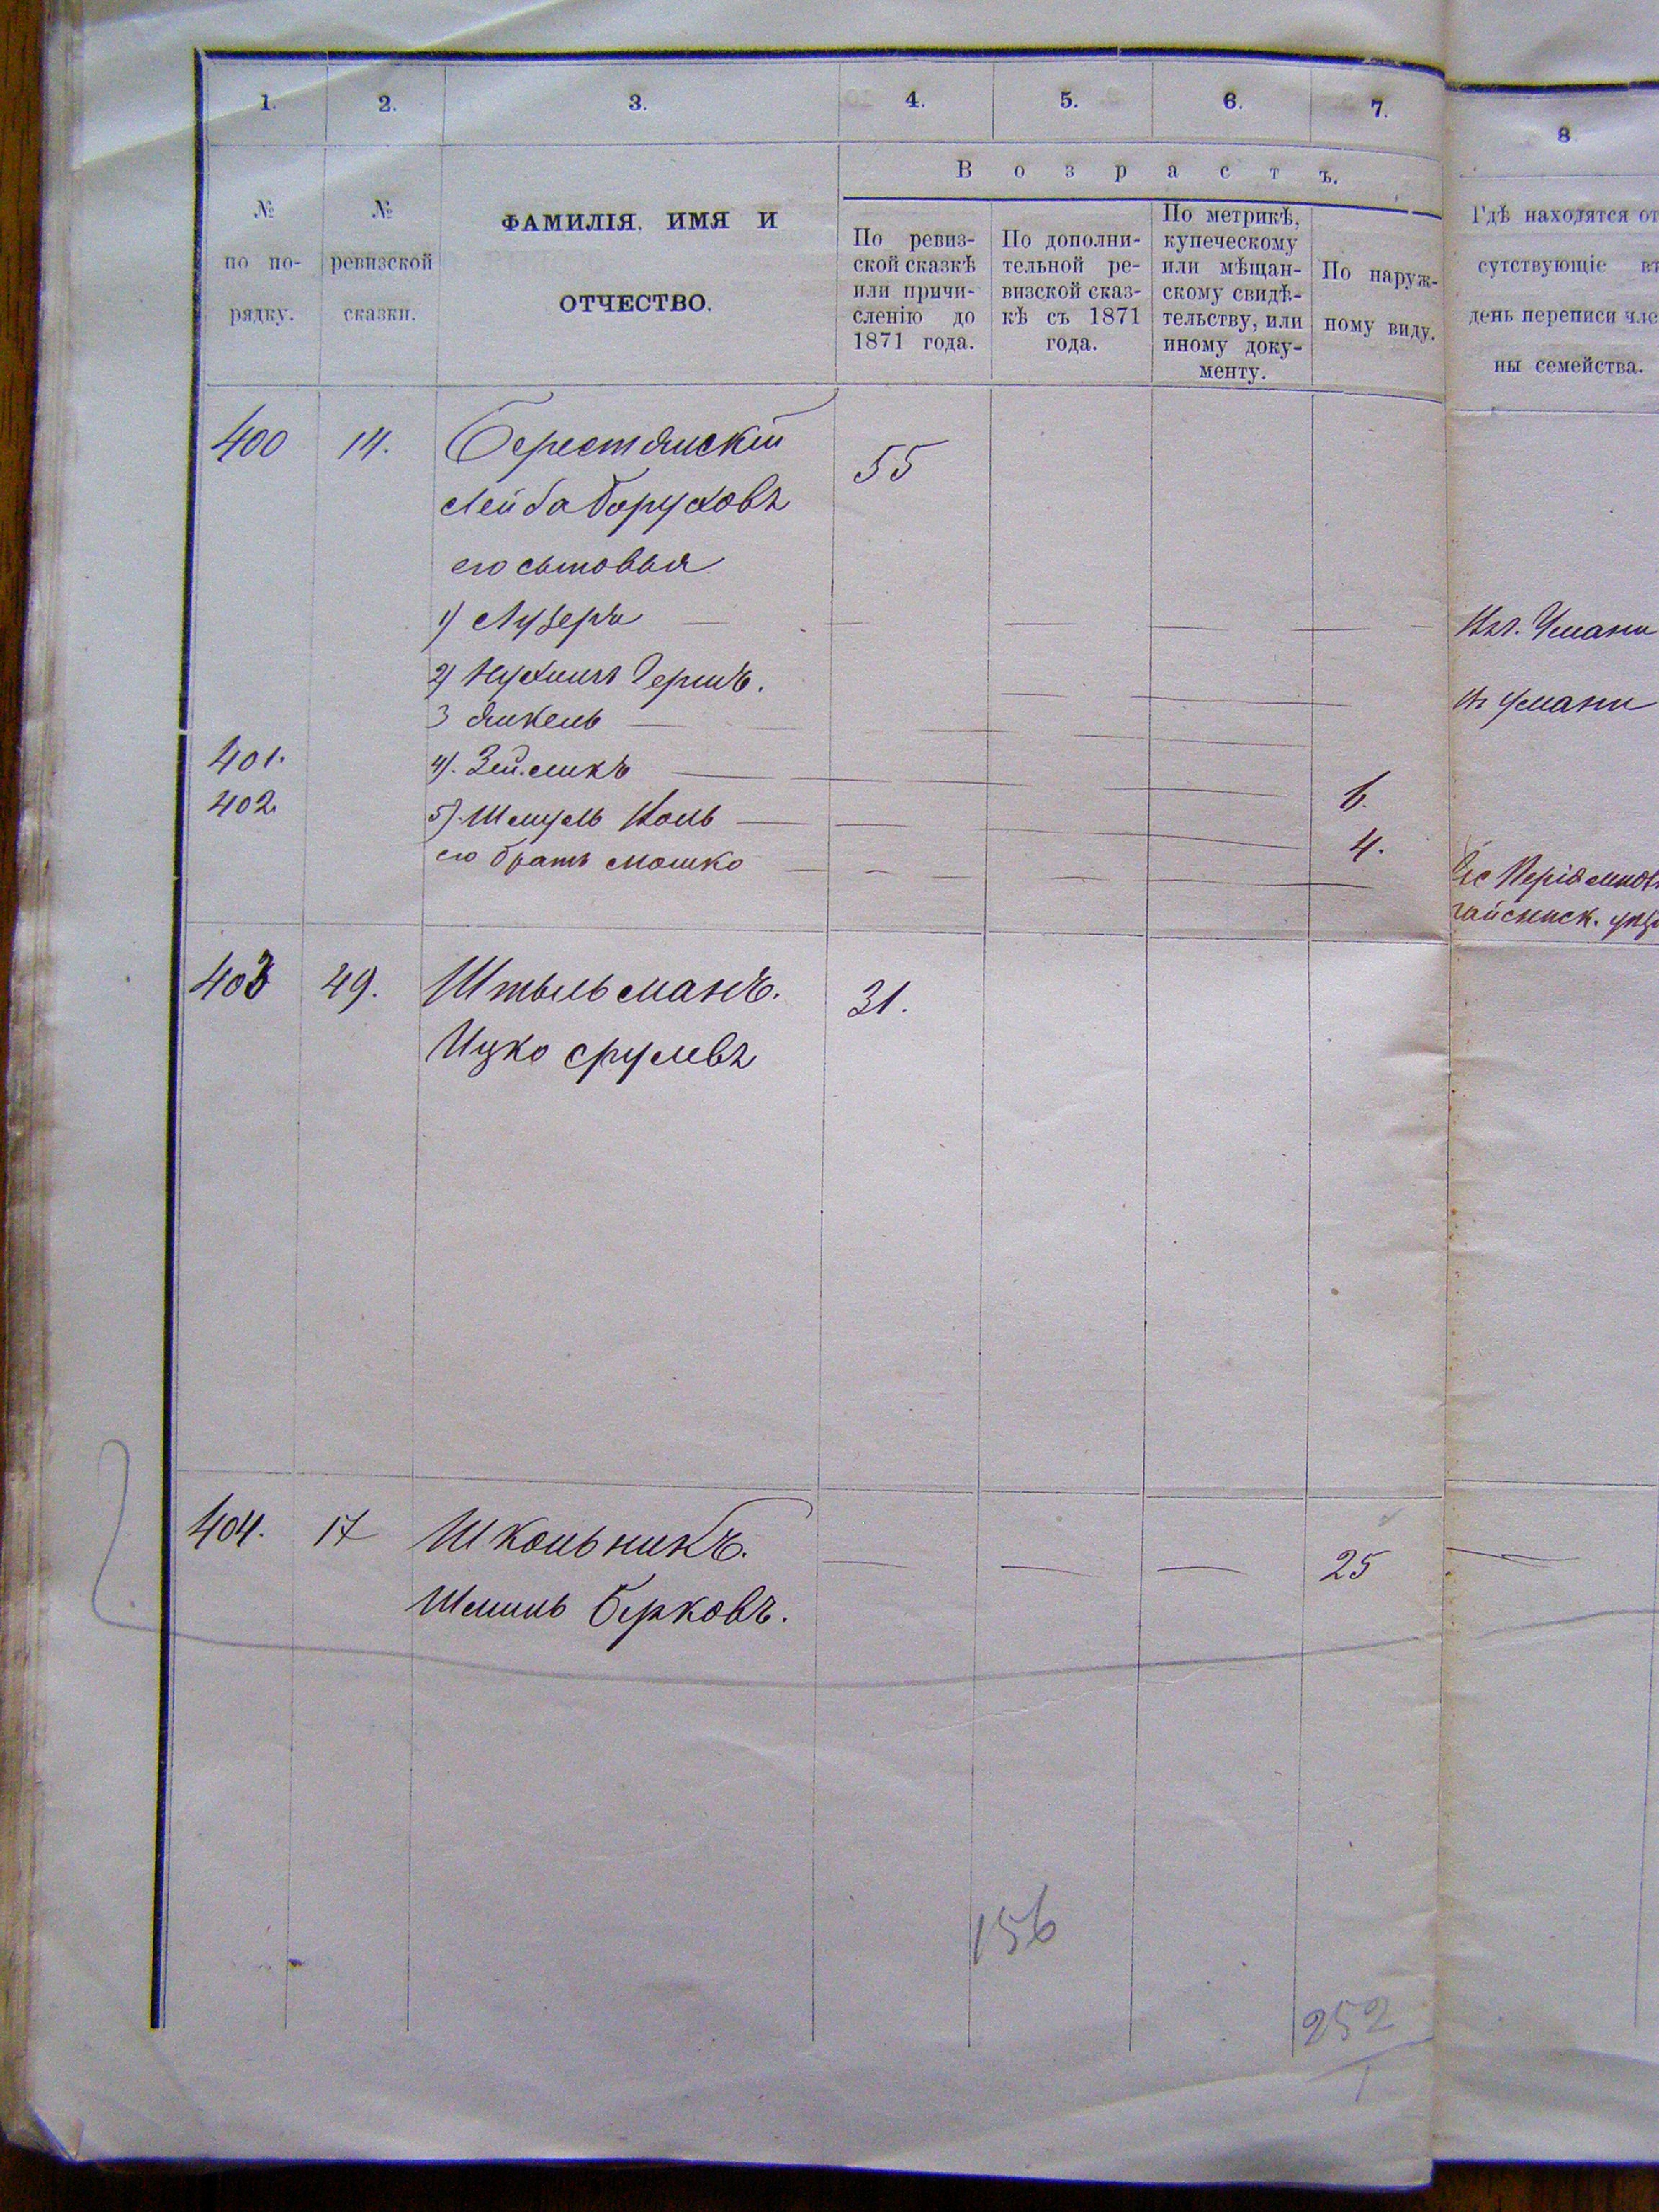 1. 2. 3. 4. 5. 6. 7. 8
Возрастъ.
№ по по-рядку.
№ ревизской сказки.
ФАМИЛІЯ, ИМЯ И
ОТЧЕСТВО.
По ревиз-
ской сказкѣ
или причи-
сленію до
1871 года.
По дополни-
тельной ре-
визской сказ-
кѣ съ 1871
года.
По метрикѣ,
купеческому
или мѣщан-
скому свидѣ-
тельству, или
иному доку-
менту.
По наруж-
ному виду.
Гдѣ находятся от
сутствующіе въ
день переписи чле
ны семейства.
400 14. Берестянскій 55
Лейба Боруховъ
его сыновья
1) Лузеръ — — — — — Умани
2) Нухимъ Гершъ. — — Умани
3 Янкель — — — —
401. 4). Зейликъ — — — — 6.
402. 5). Шмуль Іоль — — — 4.
его братъ Мошко — — — — —
гайсинск.
403 49. Штыльманъ. 31.
Ицко Срулевъ
404. 17 Школьникъ. — — — 25 —
Берковъ.
156
252
1